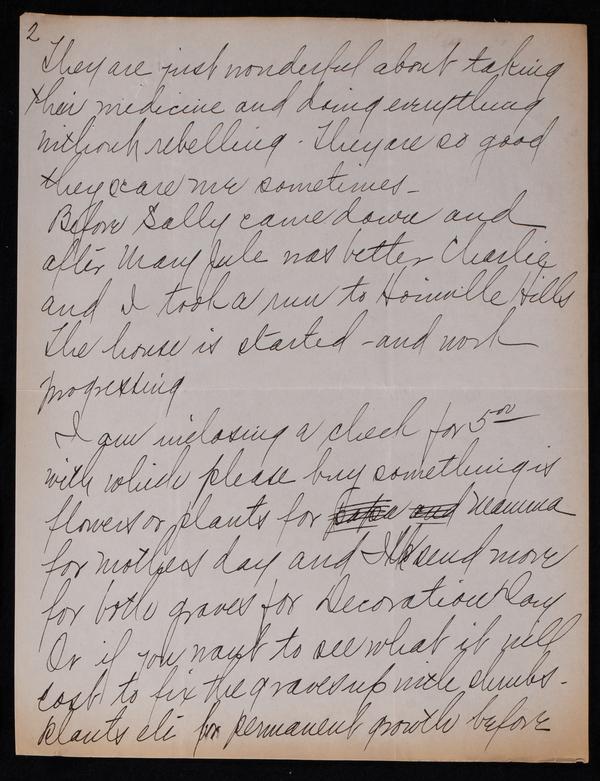 2
They are just wonderful about taking
their medicine and doing everything
without rebelling - They are so good
they scare me sometimes -
Before Sally came down and
after Mary Jule was better Charlie
and I took a run to Hills
The house is started - and work
progressing
I am inclosing a check for 5.00
with which please buy something is
flowers or plants for papa and Mamma
for mothers day and I'll send more
for both graves for Decoration Day
Or if you want to see what it will
cost to fix the graves up with shrubs -
plants etc for permanent growth before